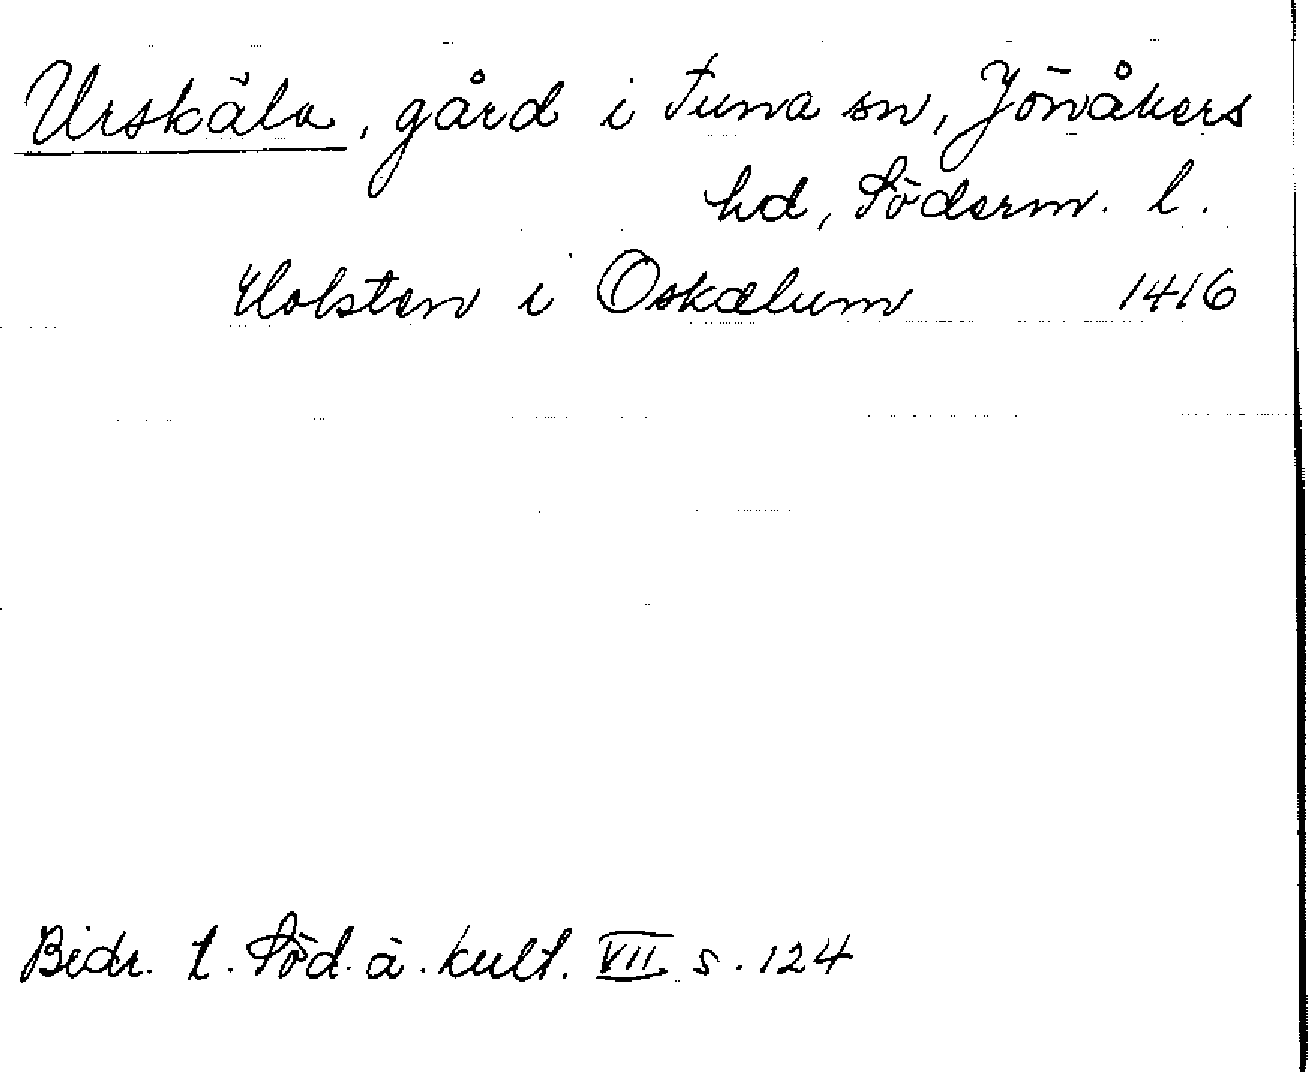 Urskäla, gård i Tuna sn, Jönåkers
hd, Söderm. l.
Holsten i Oskælum 1416
Bidr. t. Söd. ä. kult. VII s. 124